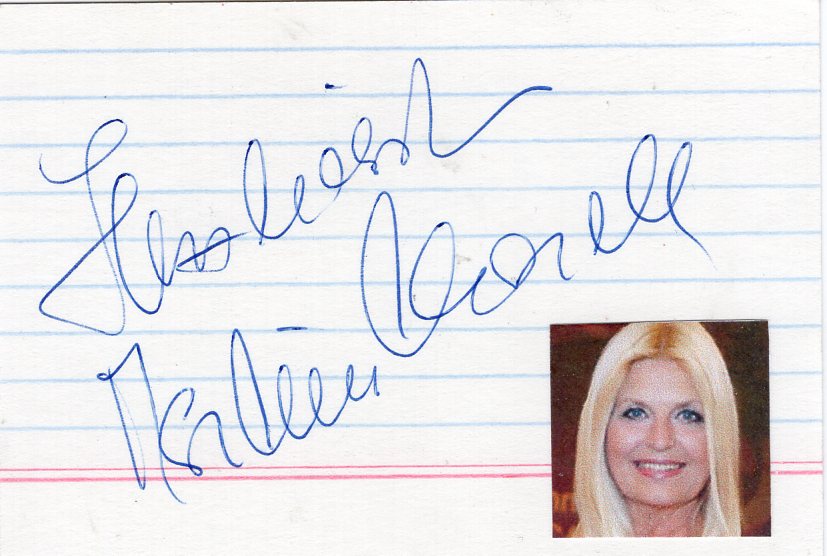 Herzlichst
Marlène Charell